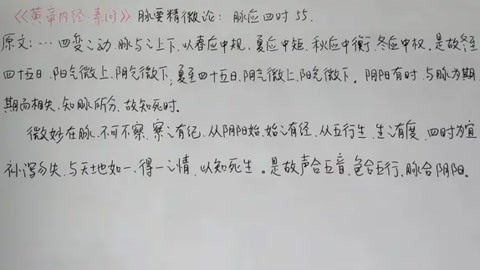 《黄帝内经 素问》脉要精微论: 脉应四时 55.
原文:… 四变之动,脉与之上下,以春应中规,夏应中矩,秋应中衡,冬应中权。是故冬至
四十五日,阳气微上,阴气微下,夏至四十五日,阴气微上,阳气微下。阴阳有时,与脉为期
期而相失,知脉所分,故知死时。
微妙在脉,不可不察,察之有纪,从阴阳始,始之有经,从五行生,生之有度,四时为宜
补泻勿失,与天地如一,得一之情,以知死生。是故声合五音,色合五行,脉合阴阳。